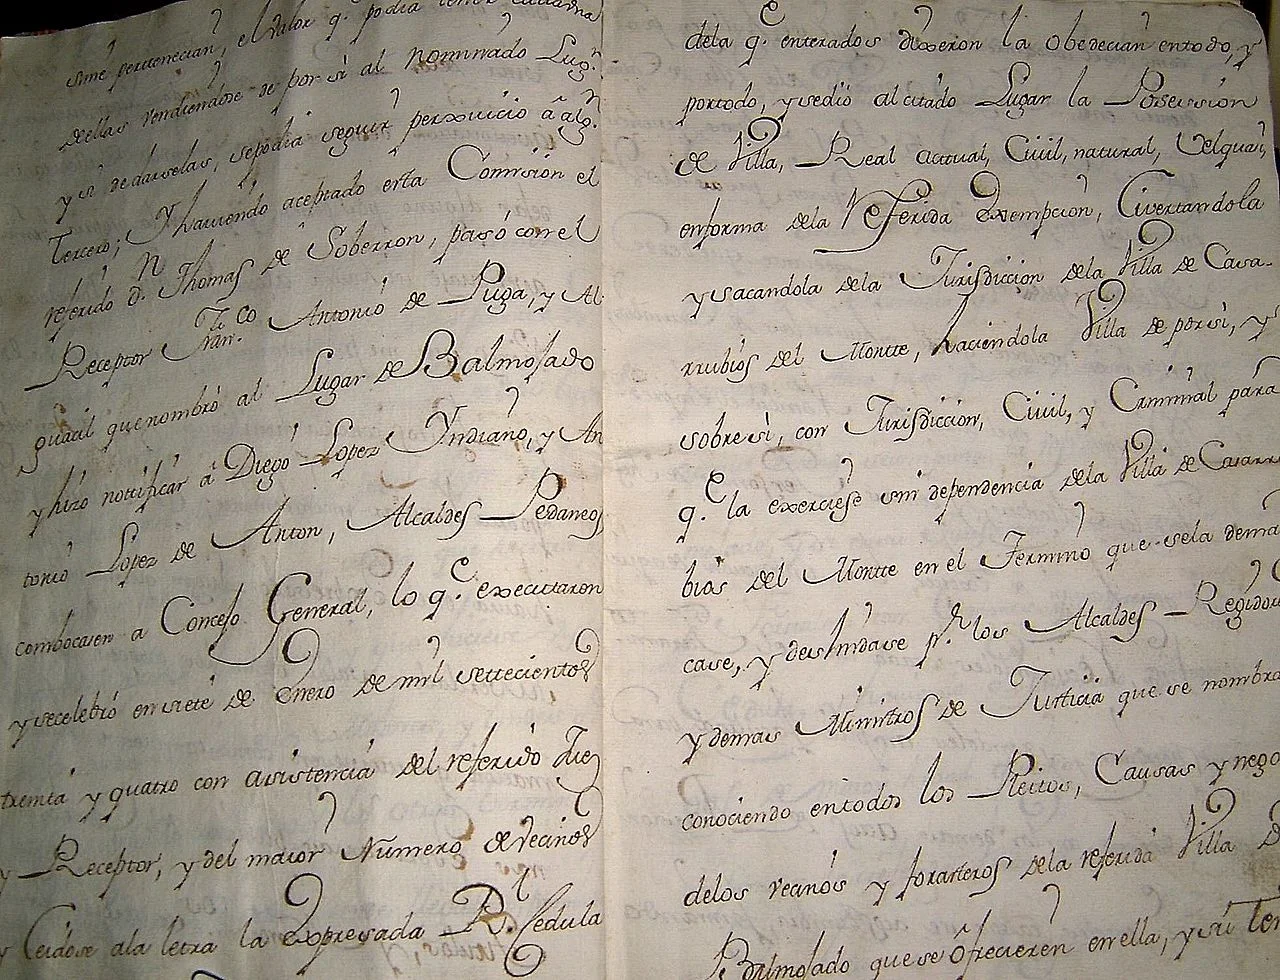 sime pertenecian, el valor q.e podia tener cada una
dellas vendiendose de por si al Nominado Lug.r
y si de darselas, sepodia seguir perxuicio â alg.n
tercero; Y haviendo aceptado esta Comision el
referido d.n Thomas de Soberron, pasó con el
Receptor Fran.co Antonio de Puga, y Al
guacil que nombró al Lugar de Balmojado
y hizo nottificar â Diego Lopez Yndiano, y An
tonio Lopez de Anton, Alcaldes Pedaneos
combocasen a Concejo General, lo q.e executaron
y secelebró en siete de Enero de mil settecientos
treinta y quatro con asistencia del referido Juez
y Receptor, y del maior Número de vecinos
y Leidose ala letra la expresada R.l Cedula
dela q.e enterados dixeron la obedecian entodo, y
portodo, y sedió al citado Lugar la Posession
de Villa, Real actual, Civil, natural, Velquasi,
enforma dela Referida Exempcion, Livertandola
y sacandola dela Jurisdiccion dela Villa de Casa-
rrubios del Montte, haciendola Villa de porsi, y
sobre si, con Jurisdiccion, Civil, y Criminal para
q.e la exerciese sin dependencia dela Villa de Casarru
bios del Montte en el Termino que sela demar
case, y deslindase p.r los Alcaldes Regidores
y demas Ministros de Justicia que se nombra
conociendo entodos los Pleitos, Causas y nego
delos vecinos y forasteros dela referida Villa D
Balmojado que se ôfrecieren en ella, y su Ter